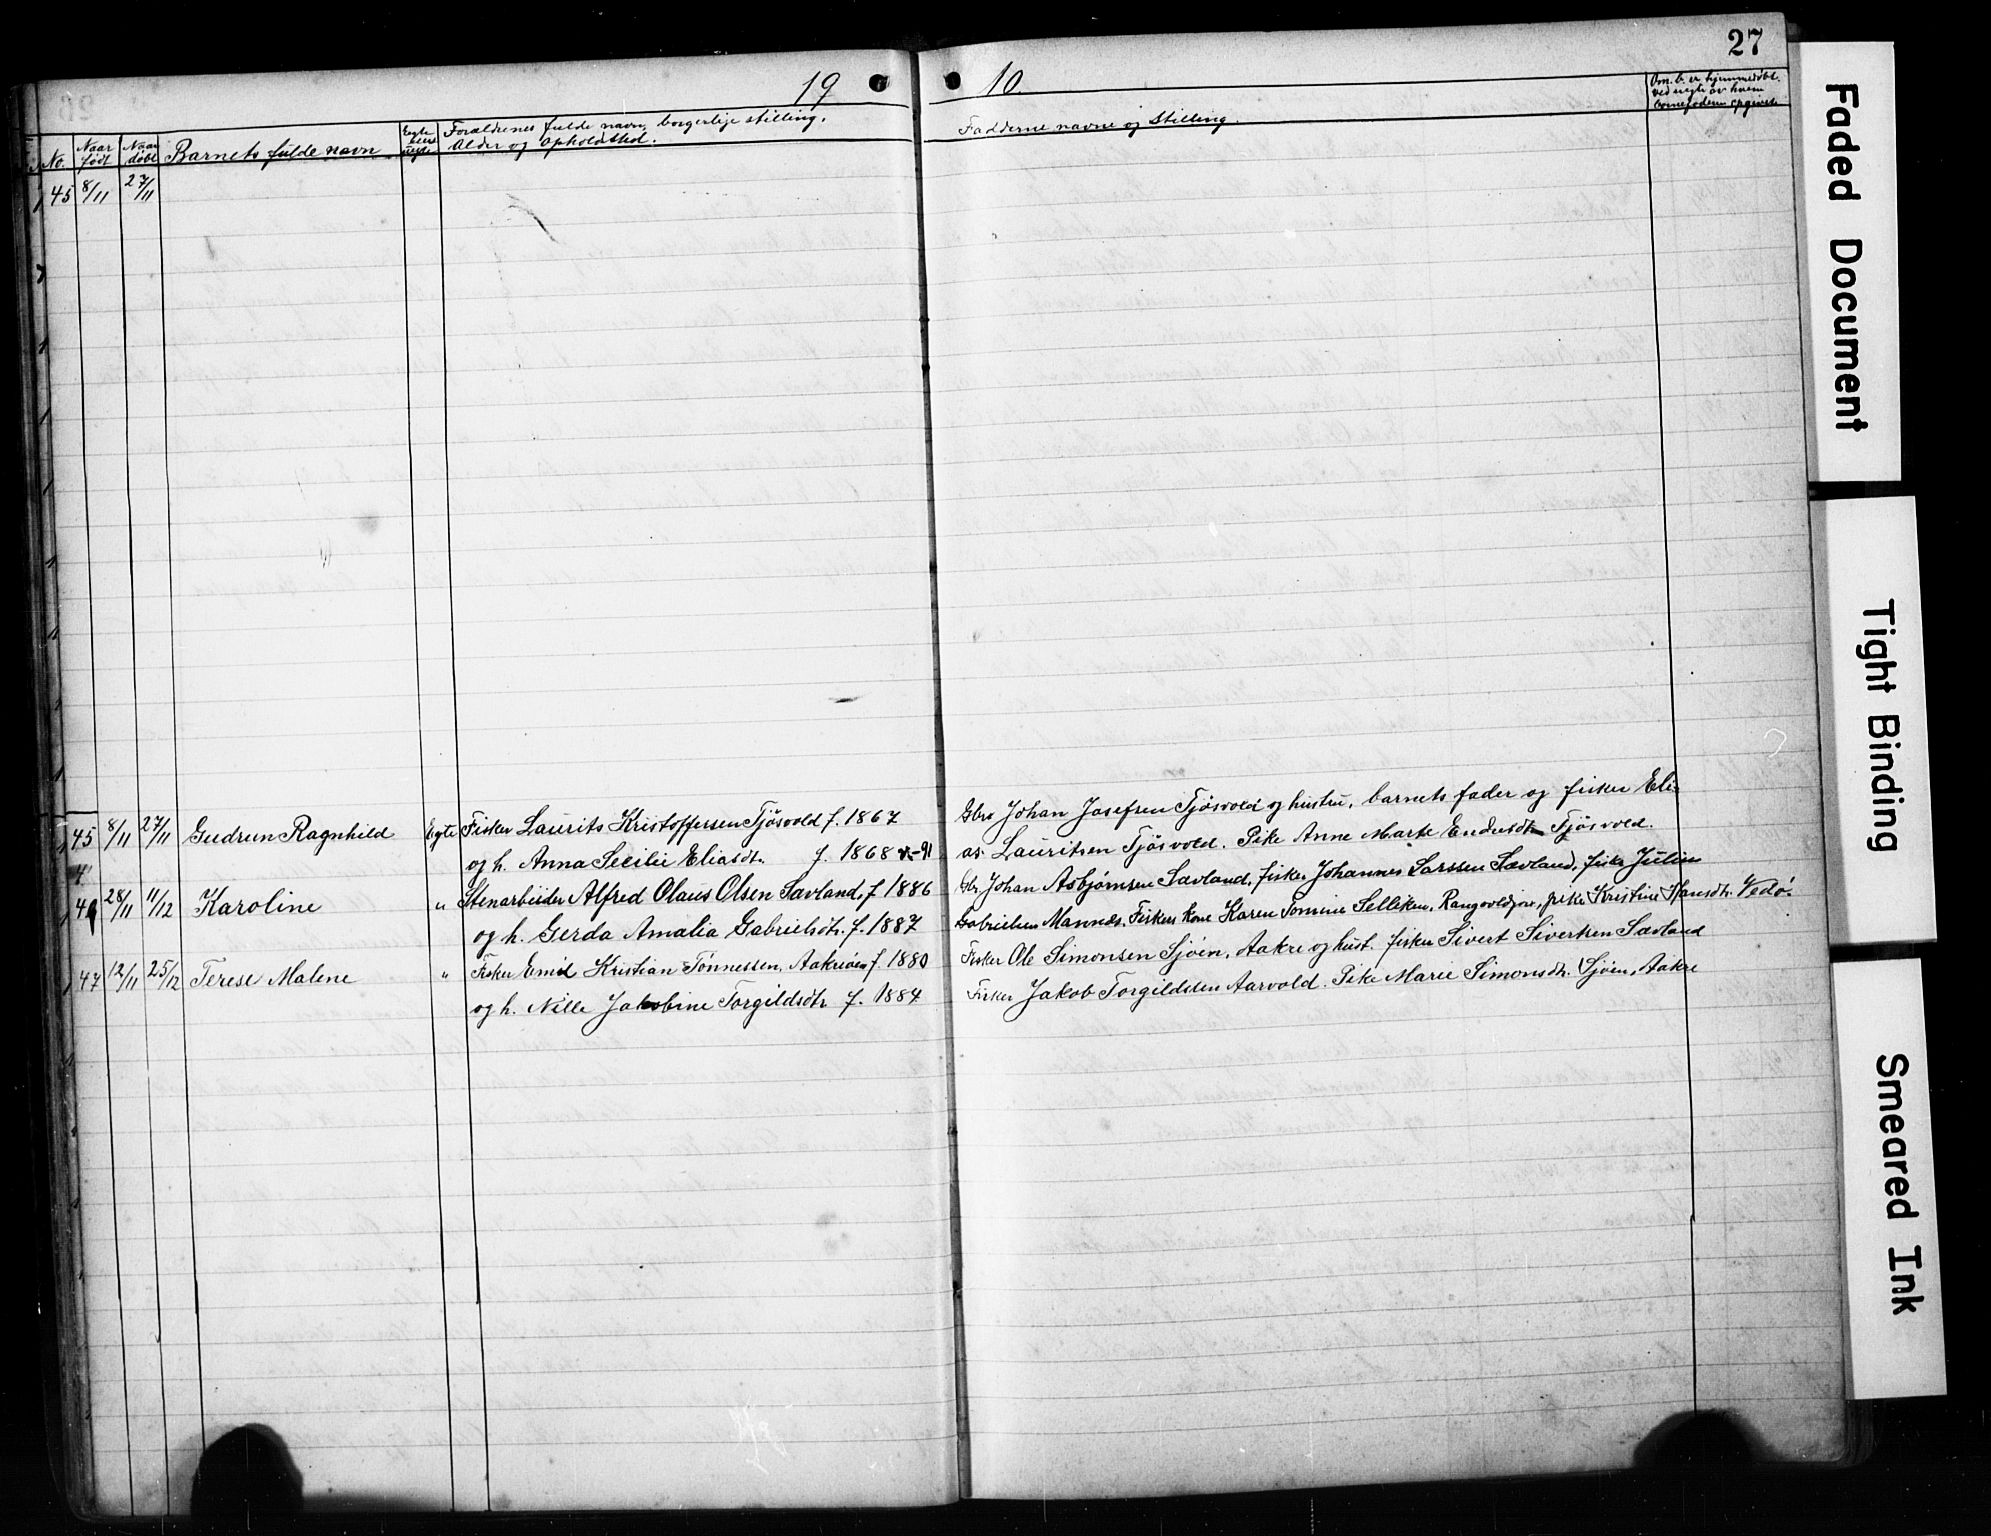 27
19 10
No. Naar født Naar døbt Barnets fulde navn Egte eller uegte Forældrenes fulde navn, borgerlige stilling, Alder og Opholdsted. Fadderne navne og Stilling. Om b. er hjemmedøbt
45 8/11 27/11
45 8/11 27/11 Gudrun Ragnhild Egte Fisker Laurits Kristoffersen Tjösvold f. 1867 Gbr Johan Josefsen Tjösvold og hustru, barnets fader og fisker Eli-
og h. Anna Secilie Eliasdt. f. 1868 as Lauritsen Tjösvold. Pike Anne Marte Endresdt Tjösvold.
28/11 11/12 Karoline " Stenarbeider Alfred Olaus Olsen Sævland, f 1886 Gbr Johan Asbjørnsen Sævland, fisker Johannes Larssen Sævland, fisker Julius
og h. Gerda Amalia Gabrielsdt. f. 1887 Gabrielsen Mannes. Fiskers kone Karen Tomine Selliken, pike Kristine Hansdt. Vedö.
47 12/11 25/12 Terese Malene " Fisker Emil Kristian Tönnessen, Aakreöen f 1880 Fisker Ole Simonsen Sjöen, Aakre og hust. fisker Sivert Sivertsen Sævland
og h. Nille Jakobine Torgildsdtr f. 1884 Fisker Jakob Torgildsen Aarvold. Pike Marie Simonsdt. Sjöen, Aakre
Faded Document
Tight Binding
Smeared Ink